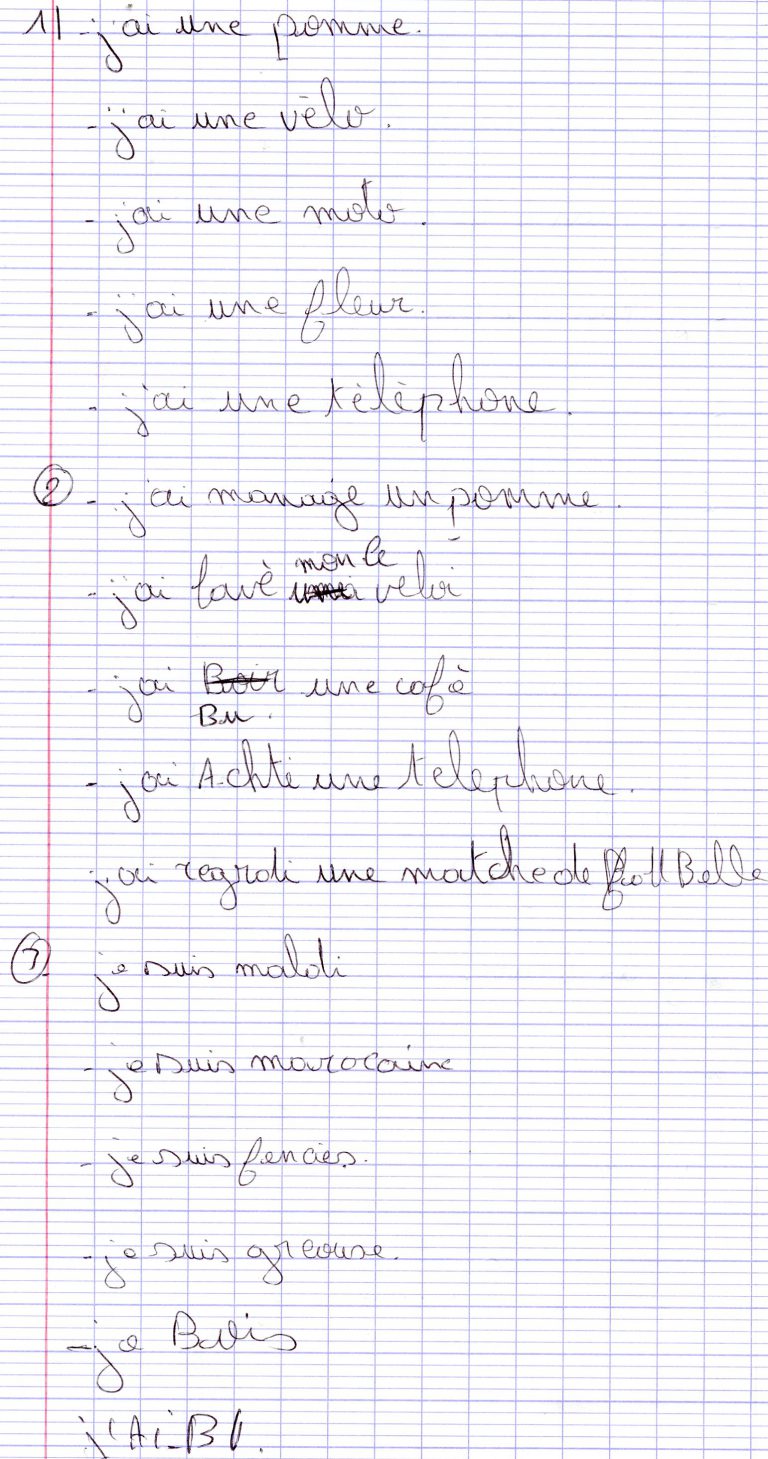 1) - j'ai une pomme.
- j'ai une vèlo.
- j'ai une moto.
- j'ai une fleur.
- j'ai une tèlèphone.
② - j'ai manage un pomme.
mon le
- j'ai lavè veloi
- j'ai Boir une cafè
Bu.
- j'ai Achti une telephone.
j'ai regrdi une matche de foll Belle
③ je suis maladi
- je suis marocaine
- je suis fencies.
- je suis greouse.
- je Bois
j'Ai-BU.